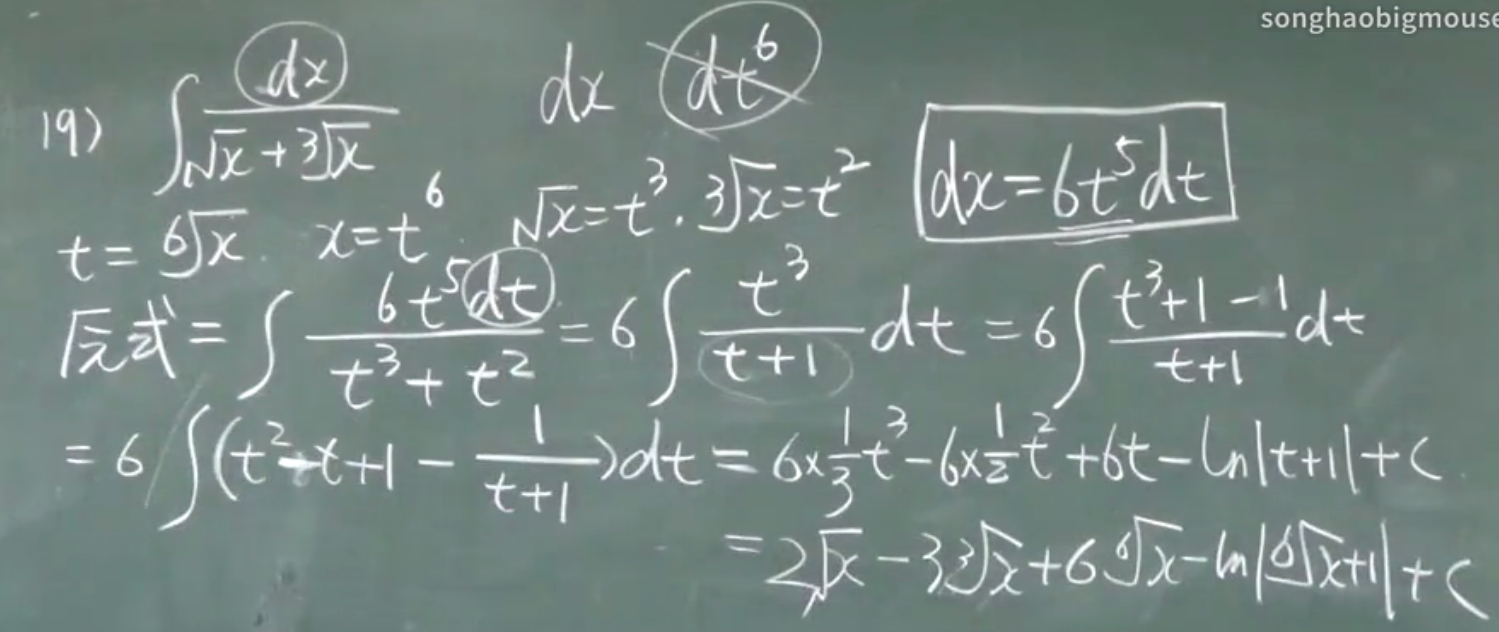 songhaobigmouse
19) ∫ dx/(√x + 3√x) dx dt⁶
t = 6√x. x = t⁶. √x = t³. 3√x = t² dx = 6t⁵dt
原式 = ∫ 6t⁵dt/(t³ + t²) = 6∫ t³/(t+1) dt = 6∫ (t³+1-1)/(t+1) dt
= 6∫(t² - t + 1 - 1/(t+1))dt = 6×1/3 t³ - 6×1/2 t² + 6t - ln|t+1| + C
= 2√x - 3 3√x + 6 6√x - ln|6√x+1| + C